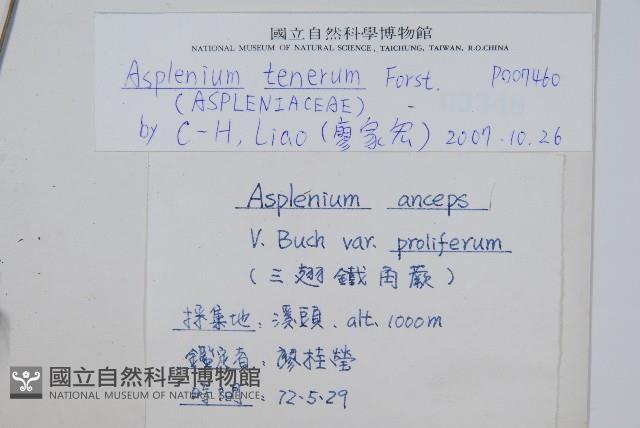 國立自然科學博物館
NATIONAL MUSEUM OF NATURAL SCIENCE, TAICHUNG, TAIWAN, R.O.CHINA
Asplenium tenerum Forst. P007460
(ASPLENIACEAE)
by C-H, Liao (廖家宏) 2007.10.26
Asplenium anceps
V. Buch var. proliferum
(三翅鐵角蕨)
採集地: 溪頭. alt. 1000m
鑑定者: 廖桂瑩
時間: 72.5.29
國立自然科學博物館
NATIONAL MUSEUM OF NATURAL SCIENCE